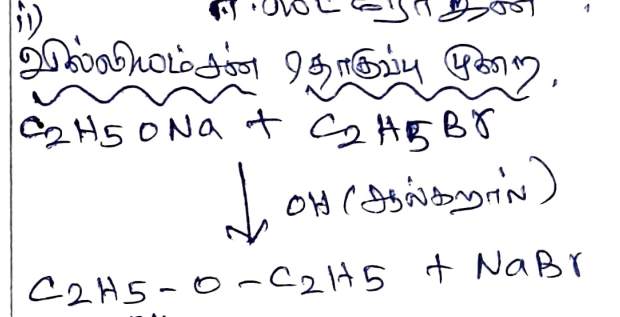 ii)
வில்லியம்சன் தொகுப்பு முறை.
C2H5ONa + C2H5Br
↓ OH (ஆல்கஹால்)
C2H5-O-C2H5 + NaBr